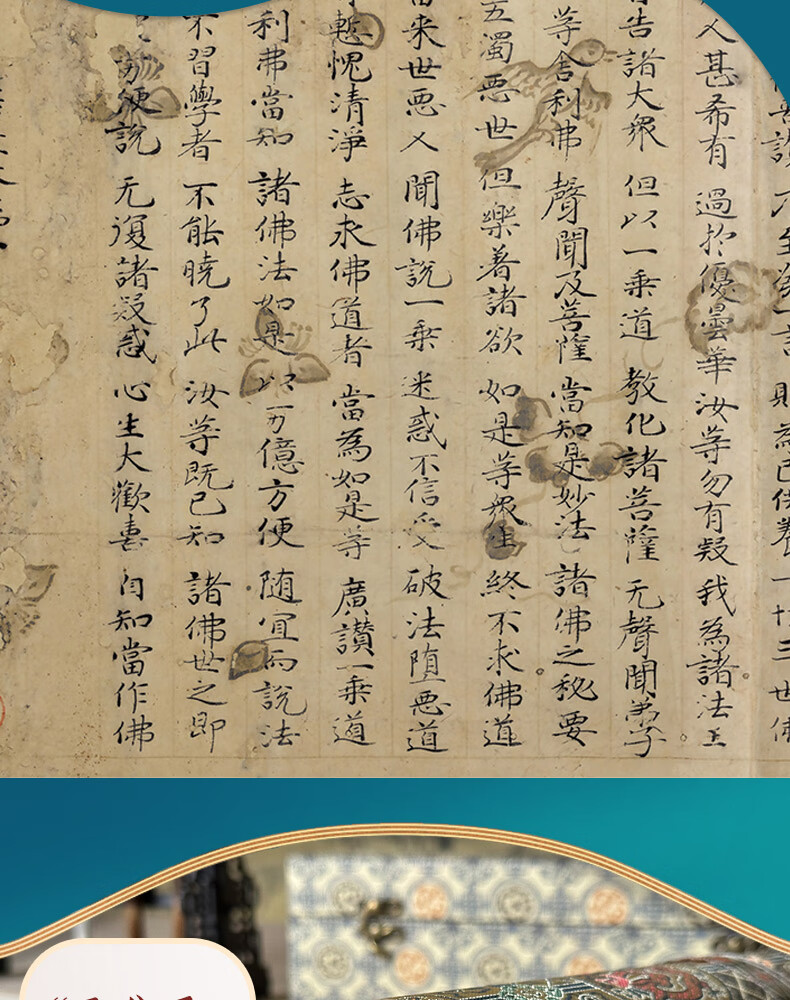 至發一言 則為已供養 一切三世佛
人甚希有 過扵優曇華 汝等勿有疑 我為諸法王
告諸大衆 但以一乗道 教化諸菩薩 无聲聞弟子
等舍利弗 聲聞及菩薩 當知是妙法 諸佛之秘要
五濁惡世 但樂著諸欲 如是等衆生 終不求佛道
来世惡人 聞佛說一乗 迷惑不信受 破法堕惡道
慙愧清淨 志求佛道者 當為如是等 廣讃一乗道
利弗當知 諸佛法如是 以万億方便 随宜而說法
不習學者 不能曉了此 汝等既已知 諸佛世之師
便說 无復諸疑惑 心生大歡喜 自知當作佛